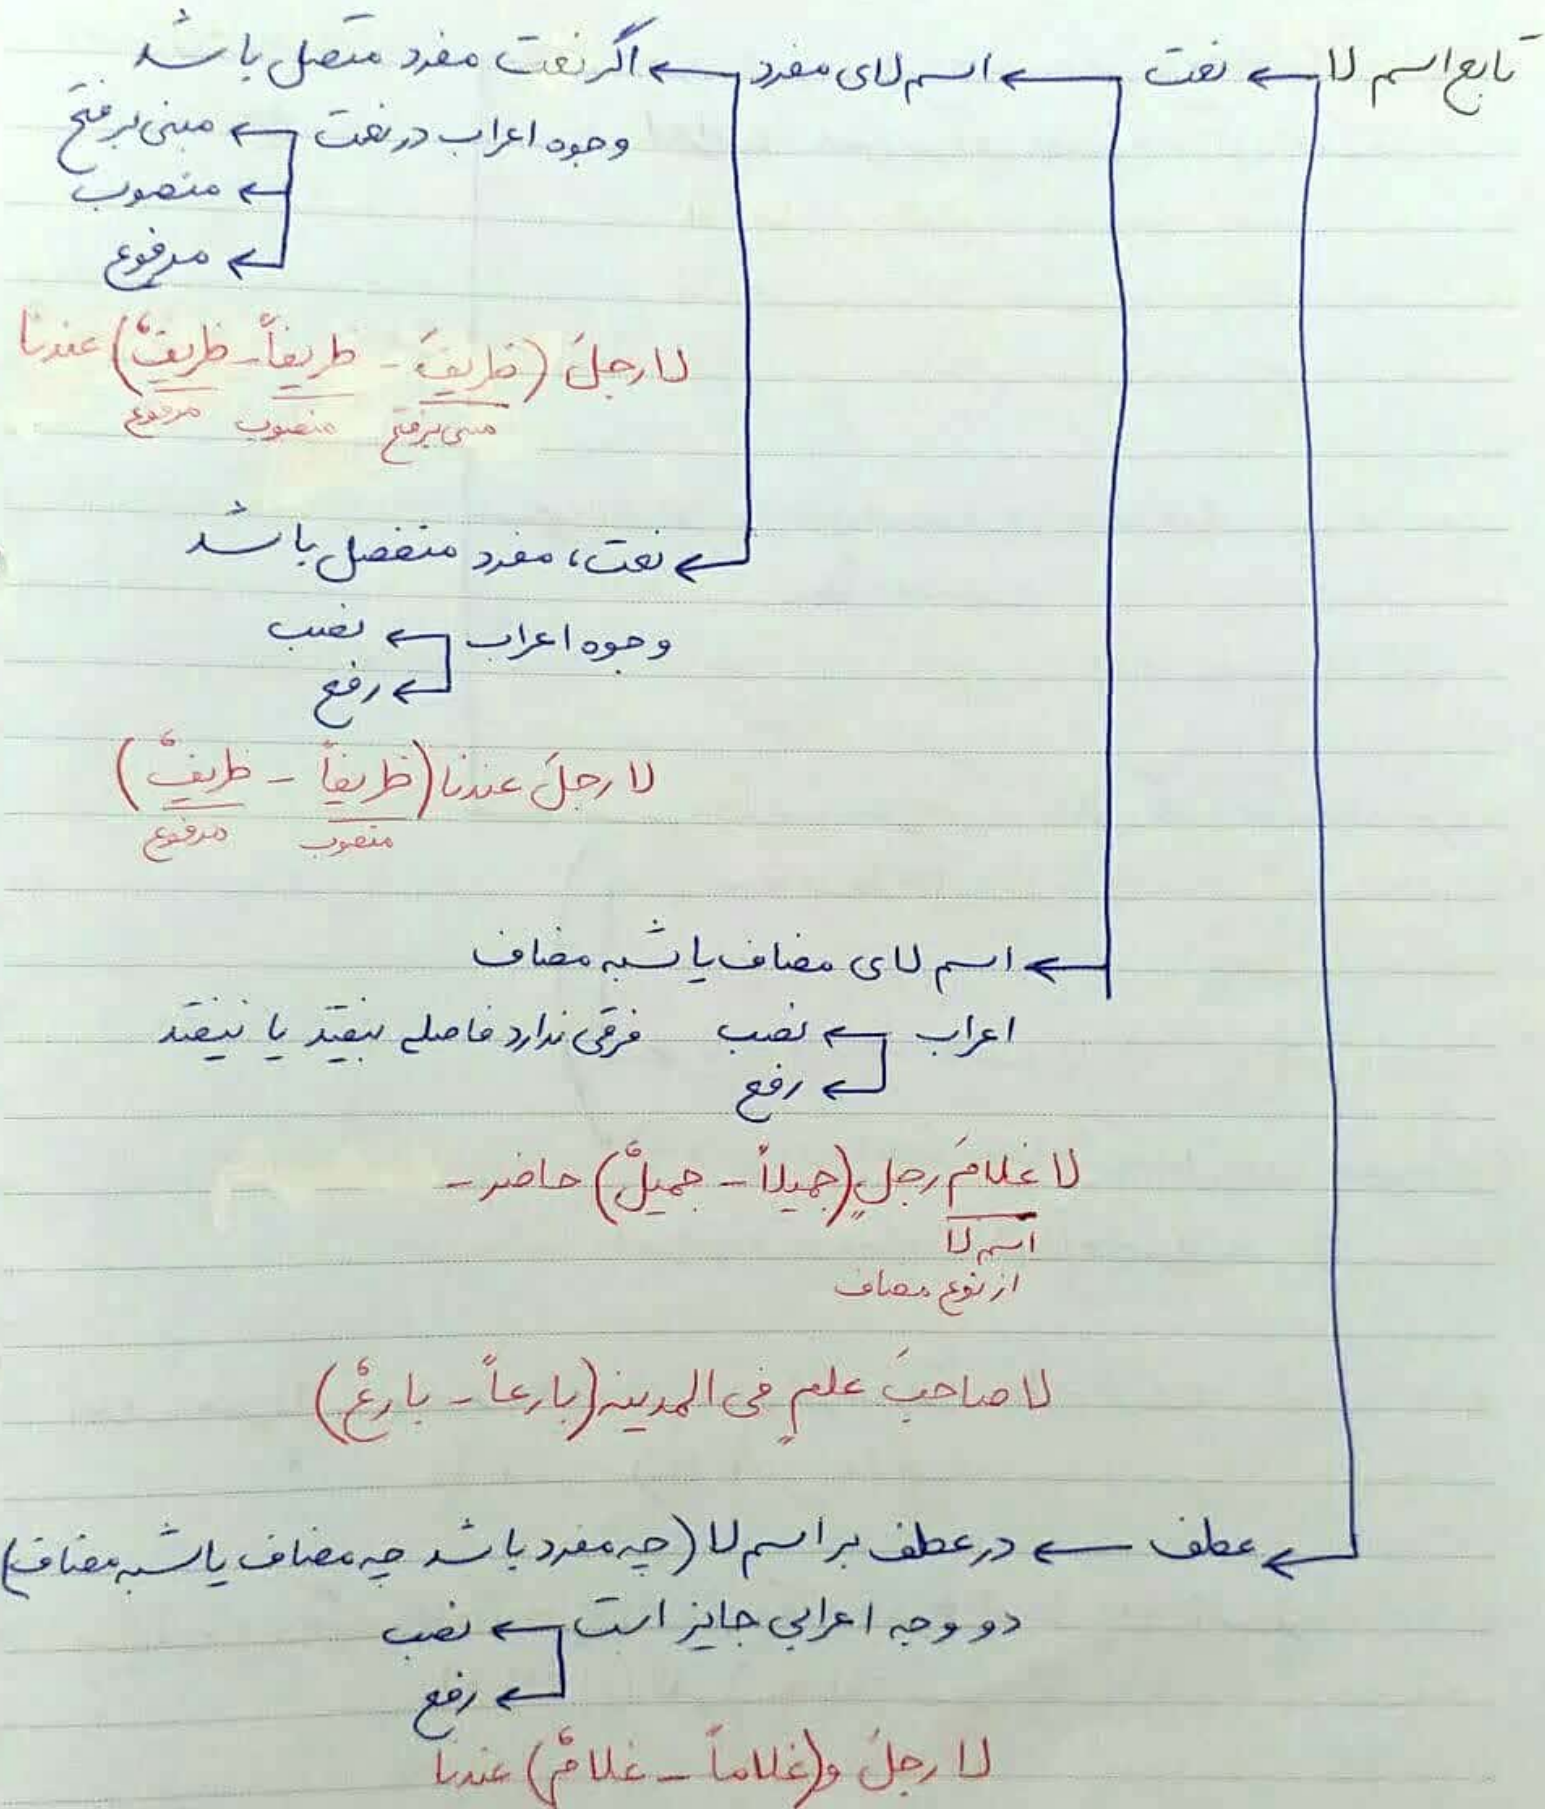 تابع اسم لا ← نعت ← اسم لای مفرد ← اگر نعت مفرد متصل باشد
وجوه اعراب در نعت ← مبنی بر فتح
← منصوب
← مرفوع
لا رجلَ (ظریفَ - ظریفاً - ظریفٌ) عندنا
مبنی بر فتح منصوب مرفوع
← نعت، مفرد منفصل باشد
وجوه اعراب ← نصب
← رفع
لا رجلَ عندنا (ظریفاً - ظریفٌ)
منصوب مرفوع
← اسم لای مضاف یا شبه مضاف
اعراب ← نصب فرقی ندارد فاصله بیفتد یا نیفتد
← رفع
لا غلامَ رجلٍ (جمیلاً - جمیلٌ) حاضر -
اسم لا
از نوع مضاف
لا صاحبَ علمٍ فی المدینه (بارعاً - بارعٌ)
← عطف ← در عطف بر اسم لا (چه مفرد باشد چه مضاف یا شبه مضاف)
دو وجه اعرابی جایز است ← نصب
← رفع
لا رجلَ و (غلاماً - غلامٌ) عندنا